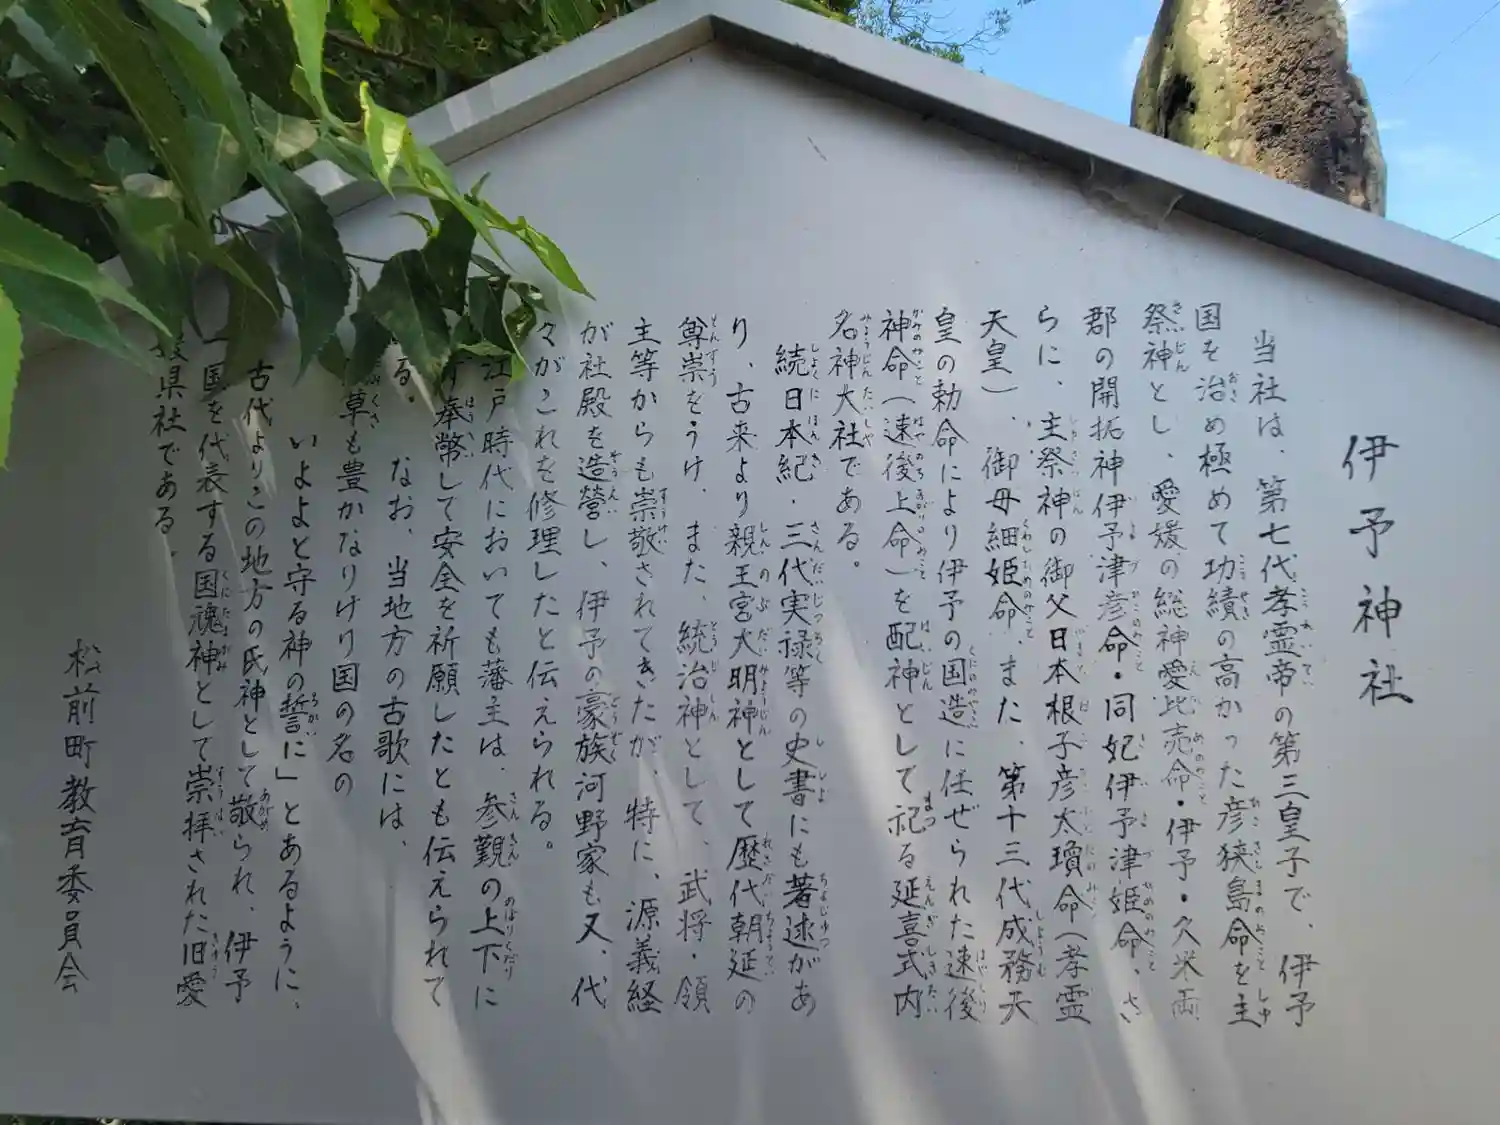 伊予神社
当社は、第七代孝霊帝の第三皇子で、伊予
国を治め極めて功績の高かった彦狭島命を主
祭神とし、愛媛の総神愛比売命・伊予・久米両
郡の開拓神伊予津彦命・同妃伊予津姫命、さ
らに、主祭神の御父日本根子彦太瓊命(孝霊
天皇)、御母細姫命、また、第十三代成務天
皇の勅命により伊予の国造に任ぜられた速後
神命(速後上命)を配神として祀る延喜式内
名神大社である。
続日本紀・三代実禄等の史書にも著述があ
り、古来より親王宮大明神として歴代朝延の
尊崇をうけ、また、統治神として、武将・領
主等からも崇敬されてきたが、特に、源義経
が社殿を造営し、伊予の豪族河野家も又、代
々がこれを修理したと伝えられる。
江戸時代においても藩主は、参覲の上下に
奉幣して安全を祈願したとも伝えられて
る。なお、当地方の古歌には、
草も豊かなりけり国の名の
いよよと守る神の誓に」とあるように、
古代よりこの地方の氏神として敬られ、伊予
一国を代表する国魂神として崇拝された旧愛
媛県社である。
松前町教育委員会